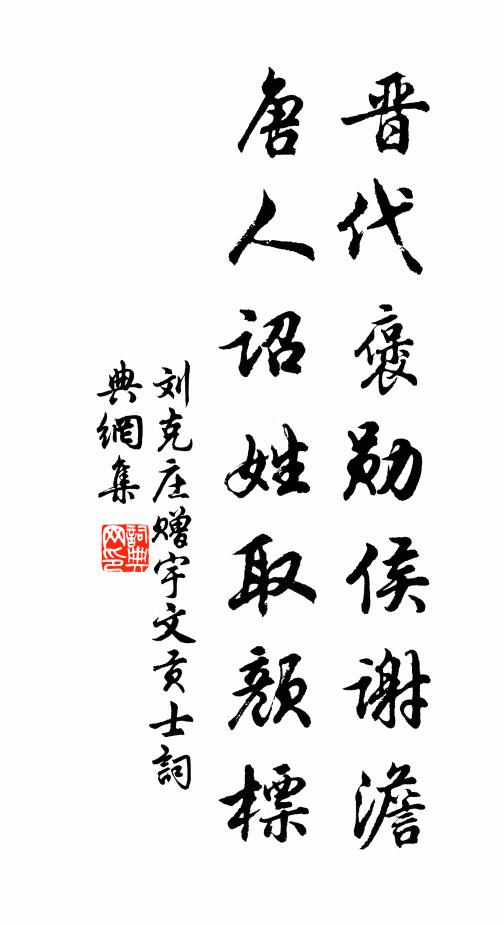 晋代褒勋侯谢澹
唐人诏姓取颜標
刘克庄赠宇文贡士詞
典網集
詞典网印